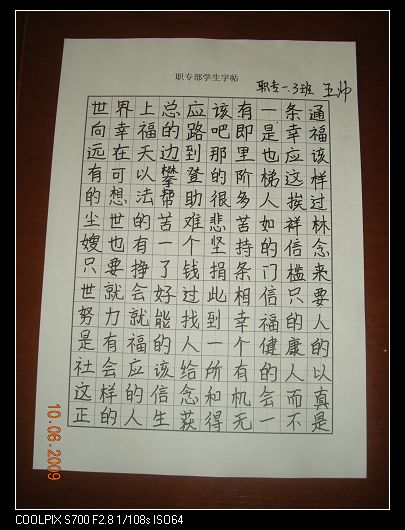 职专部学生字帖
职专一.3班 王帅
世界上总应该有一条通
向幸福的路吧即是幸福
远在天边到那里也应该
有可以攀登的阶梯这样
的想法帮助很多人挨过
尘世的苦难悲苦如祥林
嫂也有一个坚持的信念
只要挣了钱捐条门槛来
世就会好过此相信只要
努力就能找到幸福的人
是有福的人一个健康的
社会应该给所有的人以
这样的信念和机会而真
正的人生获得无一不是
10.06.2009
COOLPIX S700 F2.8 1/108s ISO64